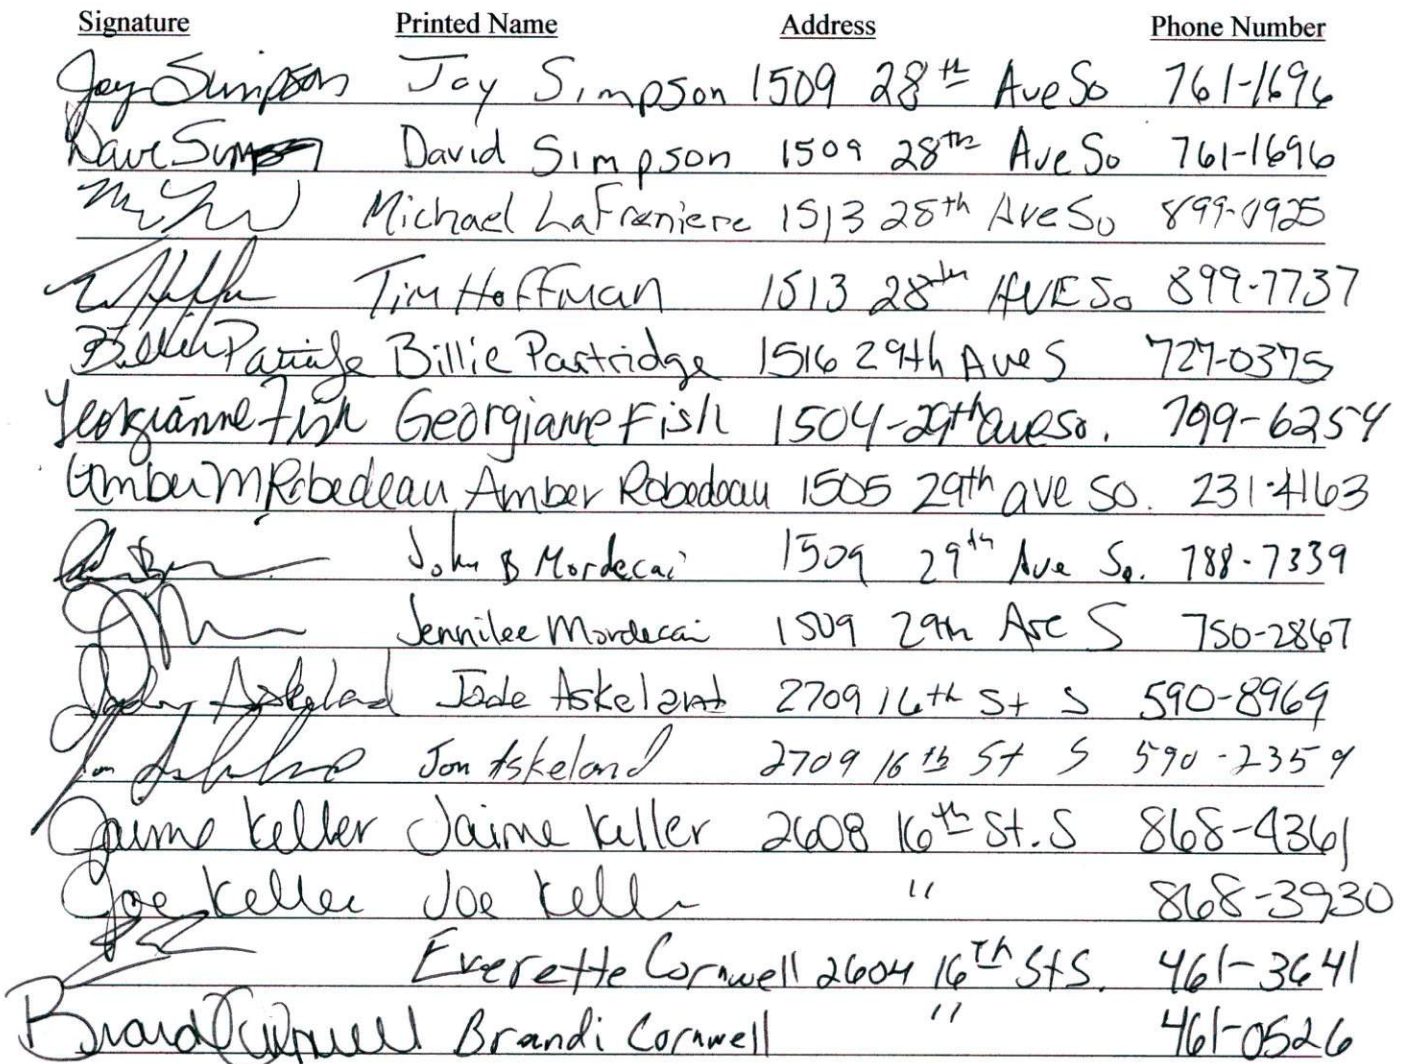 Signature Printed Name Address Phone Number
Joy Simpson Joy Simpson 1509 28th Ave So 761-1696
Dave Simpson David Simpson 1509 28th Ave So 761-1696
Michael LaFreniere 1513 28th Ave So 899-0925
Tim Hoffman 1513 28th AVE So 899-7737
Billie Partridge Billie Partridge 1516 29th Ave S 727-0375
Georgianne Fish Georgianne Fish 1504-29th Ave So. 799-6254
Amber M Robedeau Amber Robedeau 1505 29th ave so. 231-4163
John B Mordecai 1509 29th Ave So. 788-7339
Jennilee Mordecai 1509 29th Ave S 750-2867
Askeland Jade Askeland 2709 16th St S 590-8969
Jon Askeland 2709 16th St S 590-2359
Jaime Keller Jaime Keller 2608 16th St. S 868-4361
Joe Keller Joe Keller " 868-3930
Everette Cornwell 2604 16th St S. 461-3641
Brandi Cornwell Brandi Cornwell " 461-0526